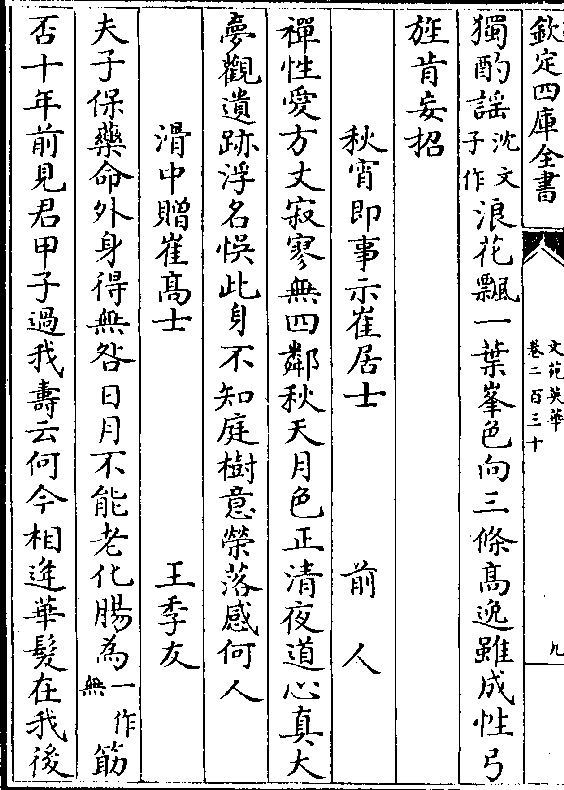 欽定四庫全書
文苑英華
卷二百三十
九
獨酌謡沈文子作浪花飄一葉峯色向三條髙逸雖成性弓
旌肯妄招
秋宵即事示崔居士 前人
禪性愛方丈寂寥無四鄰秋天月色正清夜道心真大
夢觀遺跡浮名悞此身不知庭樹意榮落感何人
滑中贈崔髙士 王季友
夫子保藥命外身得無咎日月不能老化腸為一作無筋
否十年前見君甲子過我壽云何今相逢華髮在我後